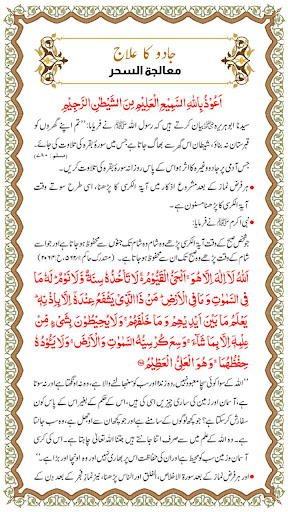 جادو کا علاج
معالجة السحر
اَعُوْذُ بِاللّٰهِ السَّمِيْعِ الْعَلِيْمِ مِنَ الشَّيْطٰنِ الرَّجِيْمِ
سیدنا ابو ہریرہ بیان کرتے ہیں کہ رسول اللہ ﷺ نے فرمایا: ”تم اپنے گھروں کو
قبرستان نہ بناؤ، شیطان اس گھر سے بھاگ جاتا ہے جس میں سورۂ بقرہ کی تلاوت کی جائے۔
جس آدمی پر جادو وغیرہ کا اثر ہو اس کے پاس روزانہ سورۂ بقرہ کی تلاوت کریں۔
ہر فرض نماز کے بعد مشروع اذکار میں آیۃ الکرسی کا پڑھنا، اسی طرح سوتے وقت
آیۃ الکرسی کا پڑھنا مسنون ہے۔
نبی اکرم ﷺ نے فرمایا:
جو شخص صبح کے وقت آیۃ الکرسی پڑھے وہ شام تک جنوں سے محفوظ ہو جاتا ہے اور جو اسے
شام کے وقت پڑھے وہ صبح تک ان سے محفوظ ہو جاتا ہے۔
اَللّٰهُ لَاۤ اِلٰهَ اِلَّا هُوَ ۚ اَلْحَيُّ الْقَيُّوْمُ ۚ لَا تَاْخُذُهٗ سِنَةٌ وَّلَا نَوْمٌ ؕ لَهٗ مَا
فِي السَّمٰوٰتِ وَمَا فِي الْاَرْضِ ؕ مَنْ ذَا الَّذِيْ يَشْفَعُ عِنْدَهٗۤ اِلَّا بِاِذْنِهٖ ؕ
يَعْلَمُ مَا بَيْنَ اَيْدِيْهِمْ وَمَا خَلْفَهُمْ ۚ وَلَا يُحِيْطُوْنَ بِشَيْءٍ مِّنْ
عِلْمِهٖۤ اِلَّا بِمَا شَآءَ ۚ وَسِعَ كُرْسِيُّهُ السَّمٰوٰتِ وَالْاَرْضَ ۚ وَلَا يَئُوْدُهٗ
حِفْظُهُمَا ۚ وَهُوَ الْعَلِيُّ الْعَظِيْمُ
”اللہ کے سوا کوئی سچا معبود نہیں، وہ زندہ اور سب کو سنبھالنے والا ہے، نہ وہ اونگھتا ہے اور نہ سوتا
ہے، آسمان اور زمین کی ساری چیزیں اسی کی ہیں، اس کے حکم کے بغیر اس کے پاس کون
سفارش کر سکتا ہے؟ جو کچھ لوگوں کے سامنے ہے اور جو کچھ ان سے اوجھل ہے، وہ سب جانتا
ہے۔ وہ اللہ کے علم میں سے صرف اتنا جانتے ہیں جتنا اللہ تعالی چاہتا ہے۔ اس کی کرسی
آسمان و زمین سب کو محیط ہے اور ان کی حفاظت اس پر بھاری نہیں اور وہ اونچا اور بڑا ہے۔“
اور ہر فرض نماز کے بعد سورۃ الاخلاص، الفلق اور الناس پڑھنا، نیز نماز فجر کے بعد دن کے